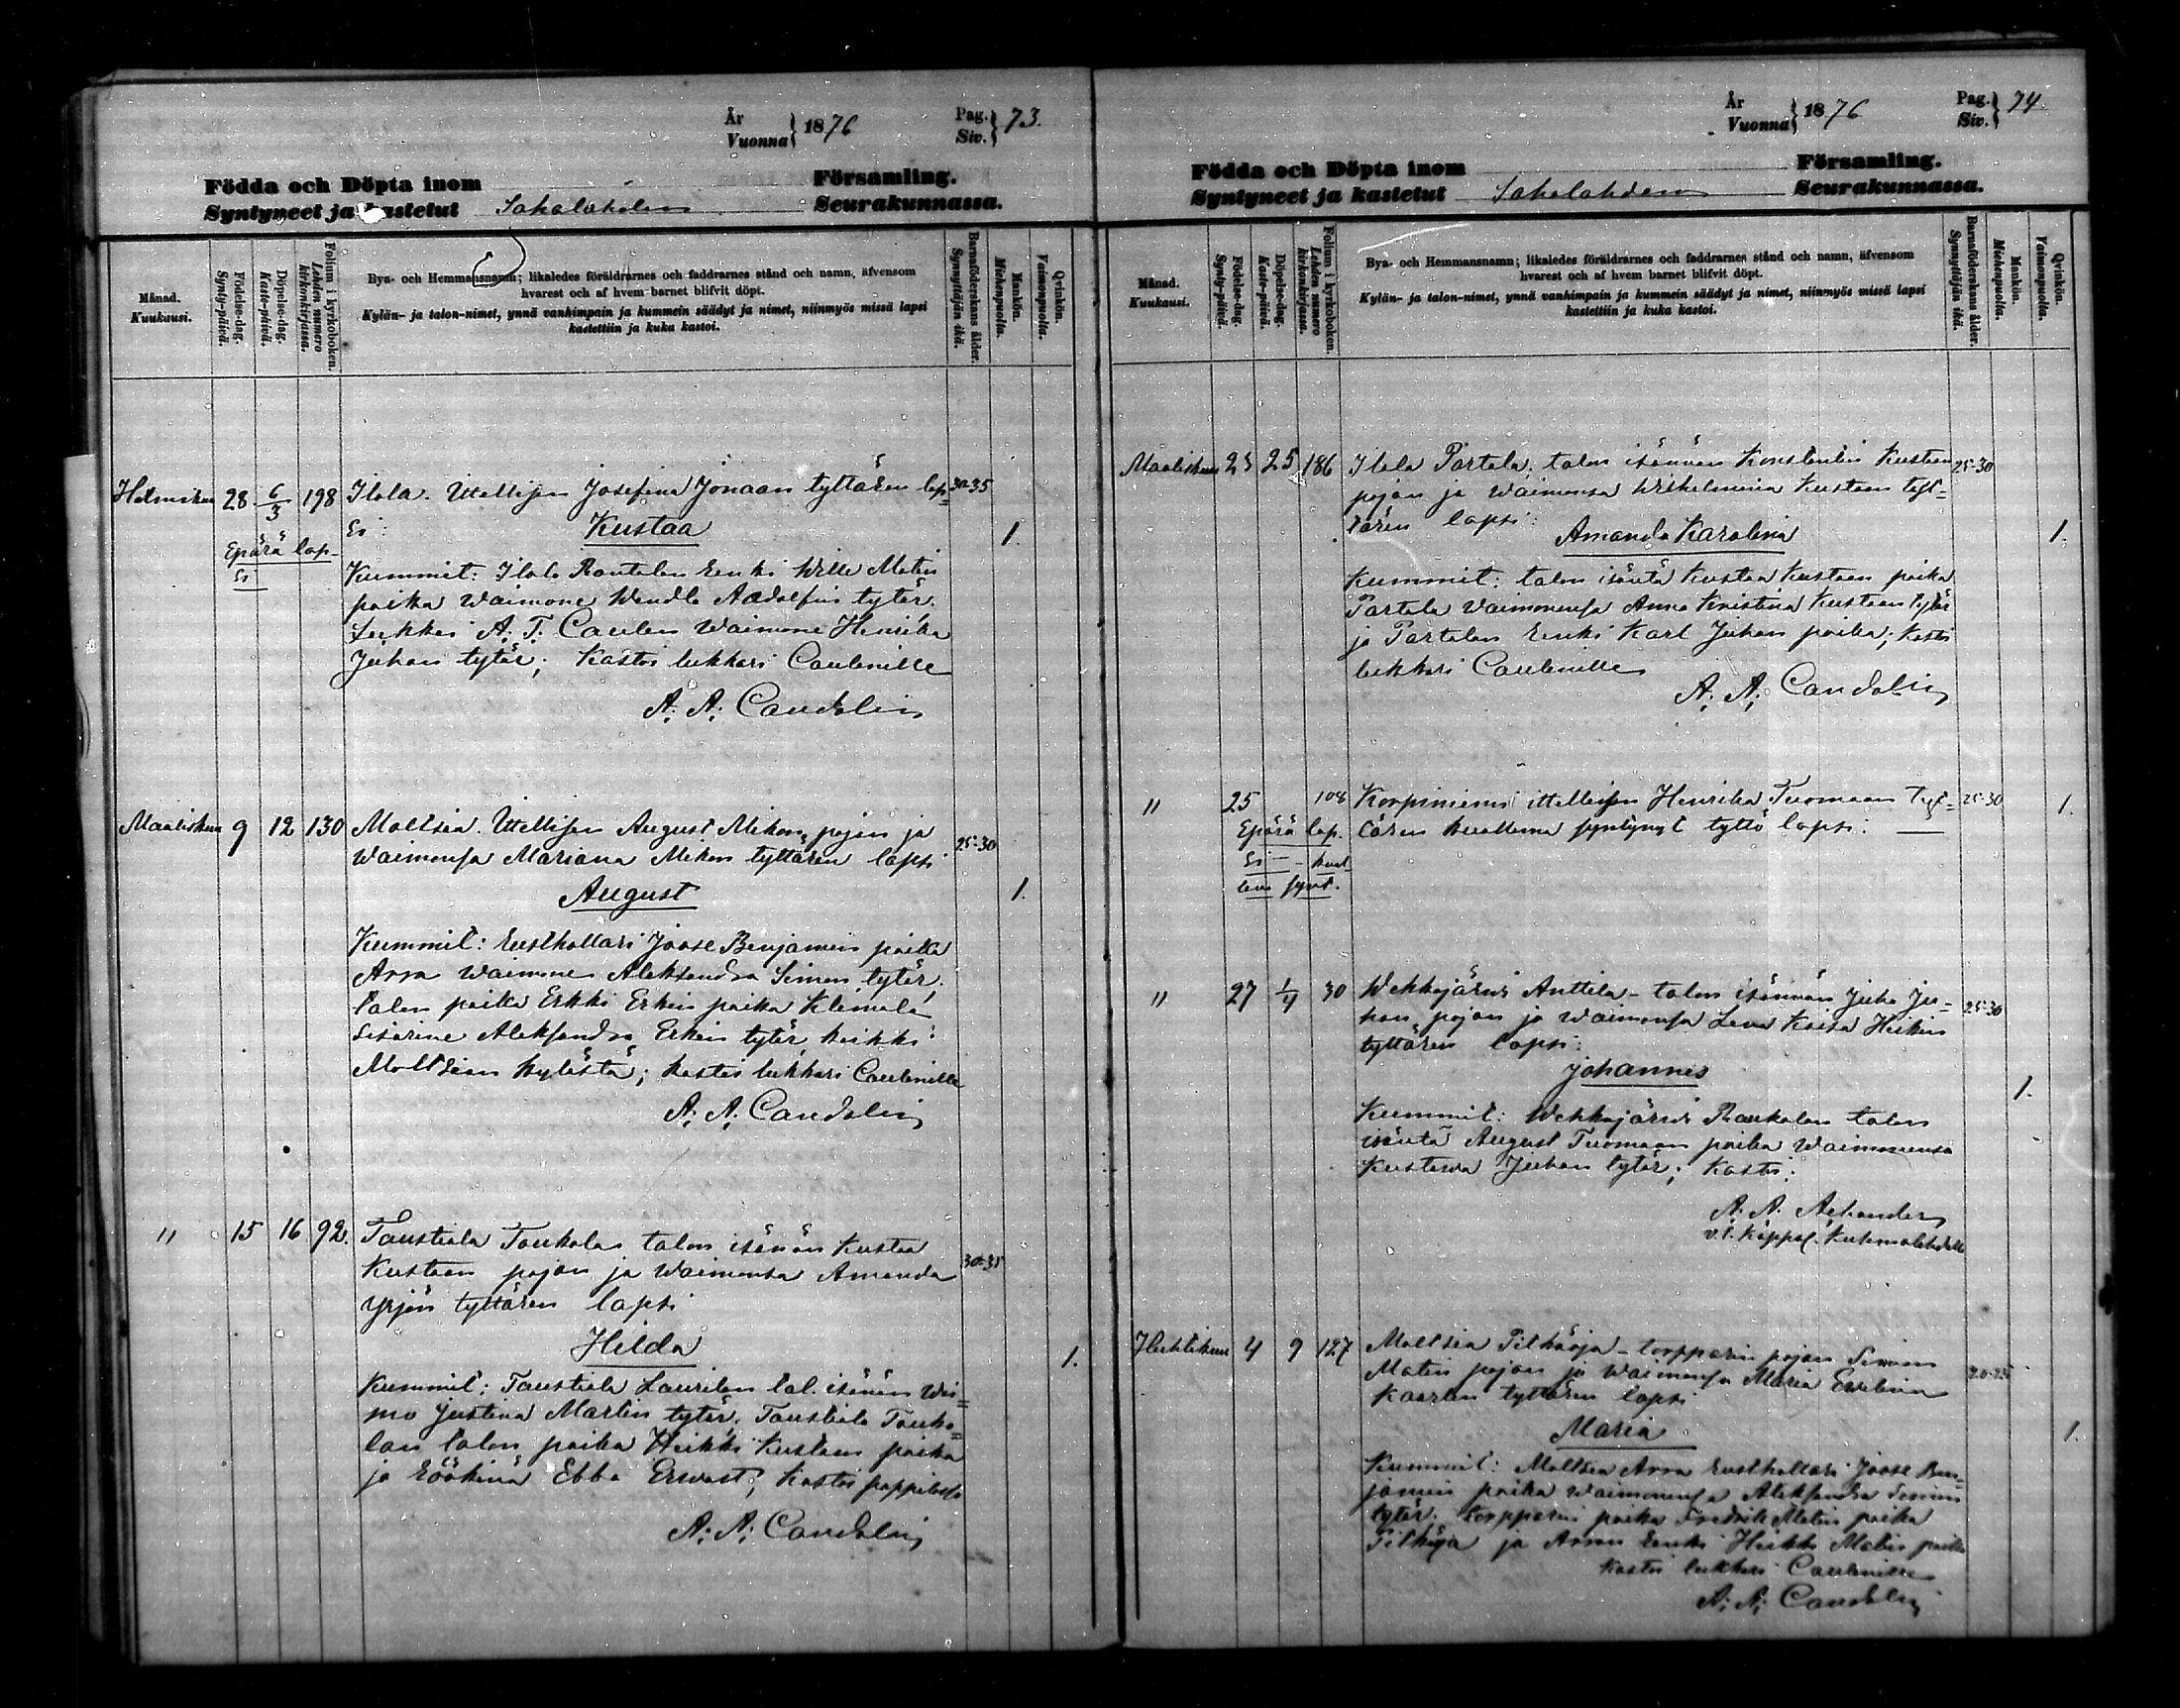 År
Vuonna } 1876
Pag.
Siv. } 73.
Födda och Döpta inom Församling.
Syntyneet ja kastetut Sahalahden Seurakunnassa.
Månad.
Kuukausi.
Födelse-dag.
Synty-päivä.
Döpelse-dag.
Kaste-päivä.
Folium i kyrkoboken.
Lehden numero kirkonkirjassa.
Bya- och Hemmansnamn; likaledes föräldrarnes och faddrarnes stånd och namn, äfvensom
hvarest och af hvem barnet blifvit döpt.
Kylän- ja talon-nimet, ynnä vanhimpain ja kummein säädyt ja nimet, niinmyös missä lapsi
kastettiin ja kuka kastoi.
Barnaföderskans ålder.
Synnyttäjän ikä.
Mankön.
Miehenpuolta.
Qvinkön.
Vaimonpuolta.
Helmikuu 28 6/3 198 Ilola. Itellisen Josefina Jonaan tyttären lap= 30-35
si:
Kustaa 1.
Epärä lap-
si
Kummit: Ilola Rantalan renki Wille Matin
poika waimone Wendla Aadolfin tytär.
Lukkari A. T. Caulen waimone Henrika
Juhan tytär; Kastoi lukkari Caulenille
A. A. Candolin
Maaliskuu 9 12 130 Moltsia. Itellisen August Mikon pojan ja
waimonsa Mariana Mikon tyttären lapsi 25-30
August 1.
Kummit: rusthollari Joose Benjamin poika
Arra waimone Aleksandra Simon tytär,
talon poika Erkki Erkin poika Klemola
sisarine Aleksandra Erkin tytär, kaikki
Moltsian kylästä; kastoi lukkari Caulenille
A. A. Candolin
" 15 16 92. Taustiala Toukolan talon isännän Kustaa
Kustaan pojan ja waimonsa Amanda 30-35
Yrjön tyttären lapsi
Hilda 1.
Kummit: Taustiala Laurilan tal. isännän wai=
mo Justina Martin tytär. Taustiala Touko=
lan talon poika Heikki Kustaan poika
ja röökinä Ebba Erwast; Kastoi pappilassa
A. A. Candolin
År
Vuonna } 1876
Pag.
Siv. } 74.
Födda och Döpta inom Församling.
Syntyneet ja kastetut Sahalahden Seurakunnassa.
Månad.
Kuukausi.
Födelse-dag.
Synty-päivä.
Döpelse-dag.
Kaste-päivä.
Folium i kyrkoboken.
Lehden numero kirkonkirjassa.
Bya- och Hemmansnamn; likaledes föräldrarnes och faddrarnes stånd och namn, äfvensom
hvarest och af hvem barnet blifvit döpt.
Kylän- ja talon-nimet, ynnä vanhimpain ja kummein säädyt ja nimet, niinmyös missä lapsi
kastettiin ja kuka kastoi.
Barnaföderskans ålder.
Synnyttäjän ikä.
Mankön.
Miehenpuolta.
Qvinkön.
Vaimonpuolta.
Maaliskuu 23 25 186 Ilola Partala. talon isännän Konstantin Kustaan 25-30
pojan ja waimonsa Wilhelmina Kustaan tyt=
tären lapsi:
Amanda Karolina 1.
Kummit: talon isäntä Kustaa Kustaan poika
Partala waimonensa Anna Kristina Kustaan tytär
ja Partalan renki Karl Juhan poika; Kastoi
lukkari Caulenille
A. A. Candolin
" 25 108 Korpiniemi ittellisen Henrika Tuomaan tyt= 25-30 1.
tären kuollunna syntynyt tyttö lapsi.
Epärä lap.
si - kuol
lena synt.
" 27 1/4 30 Wehkajärvi Anttila-talon isännän Juho Ju=
han pojan ja waimonsa Lena Kaisa Heikin 25-30
tyttären lapsi:
Johannes 1.
Kummit: Wehkajärvi Raukalan talon
isäntä August Tuomaan poika waimonensa
Kustawa Juhan tytär; Kastoi:
A. A.
v.t. Kappal. Kuhmalahdella
Huhtikuu 4 9 127 Moltsia Pitkäoja-torpparin pojan Simon
Matin pojan ja waimonsa Maria Ewelina 20-25
Kaarlen tyttären lapsi
Maria 1.
Kummit: Moltsia Arra rusthollari Joose Ben=
jamin poika waimonensa Aleksandra Simon
tytär. torpparin poika Fredrik Matin poika
Pitkäoja ja Arran renki Heikki Matin poika
Kastoi lukkari Caulenille
A. A. Candolin